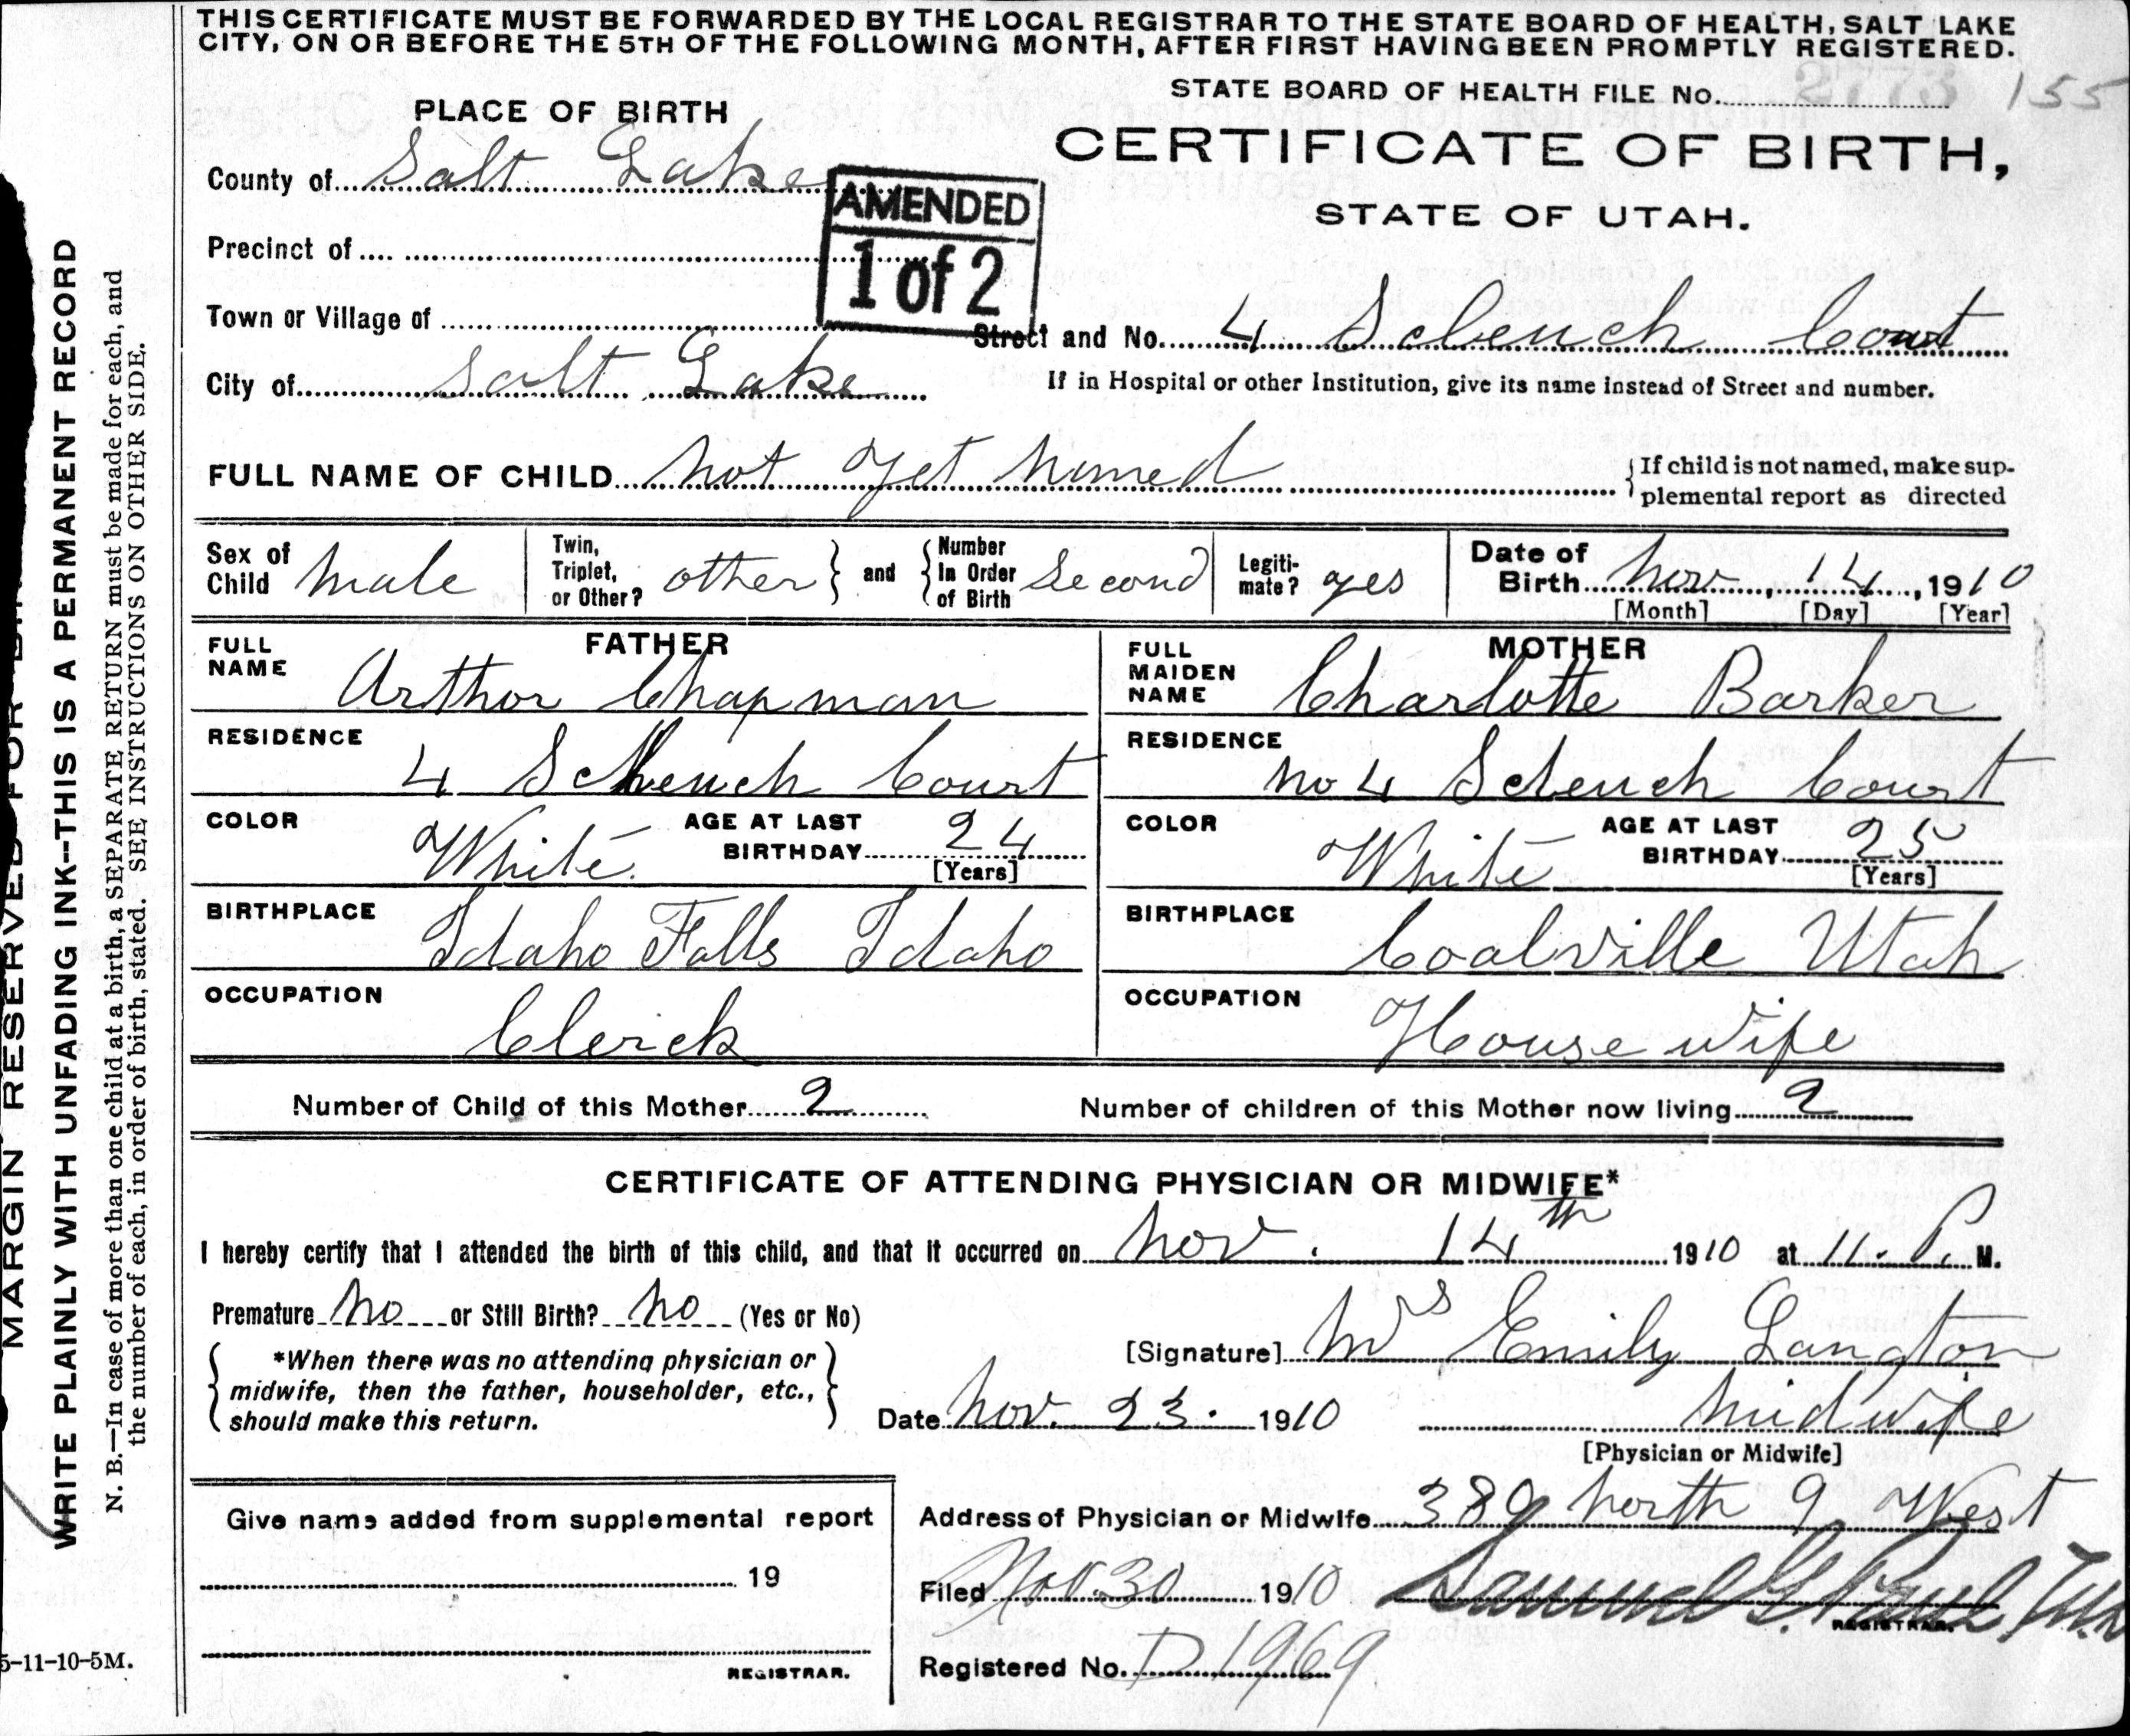 THIS CERTIFICATE MUST BE FORWARDED BY THE LOCAL REGISTRAR TO THE STATE BOARD OF HEALTH, SALT LAKE
CITY, ON OR BEFORE THE 5TH OF THE FOLLOWING MONTH, AFTER FIRST HAVING BEEN PROMPTLY REGISTERED.
STATE BOARD OF HEALTH FILE No. 2773 155
PLACE OF BIRTH
CERTIFICATE OF BIRTH,
STATE OF UTAH.
County of Salt Lake
AMENDED
1 of 2
Precinct of
Town or Village of
Street and No. 4 Sclench Court
City of Salt Lake
If in Hospital or other Institution, give its name instead of Street and number.
FULL NAME OF CHILD not yet named
If child is not named, make sup-
plemental report as directed
Sex of Child male
Twin, Triplet, or Other? other and Number In Order of Birth Second
Legiti-mate? yes
Date of Birth Nov 14, 1910
[Month] [Day] [Year]
FATHER
FULL NAME Arthor Chapman
RESIDENCE 4 Schench Court
COLOR White AGE AT LAST BIRTHDAY 24
[Years]
BIRTHPLACE Idaho Falls Idaho
OCCUPATION Clerck
MOTHER
FULL MAIDEN NAME Charlotte Barker
RESIDENCE no 4 Sclench Court
COLOR White AGE AT LAST BIRTHDAY 25
[Years]
BIRTHPLACE Coalville Utah
OCCUPATION House wife
Number of Child of this Mother 2 Number of children of this Mother now living 2
CERTIFICATE OF ATTENDING PHYSICIAN OR MIDWIFE*
I hereby certify that I attended the birth of this child, and that it occurred on Nov. 14th 1910 at 11. P. M.
Premature no or Still Birth? no (Yes or No)
[Signature] Mrs Emily Langton
*When there was no attending physician or
midwife, then the father, householder, etc.,
should make this return.
Date Nov. 23. 1910 midwife
[Physician or Midwife]
Give name added from supplemental report
19
REGISTRAR.
Address of Physician or Midwife 380 north 9 West
Filed Nov. 30 1910 Samuel G. Paul
REGISTRAR.
Registered No. D 1969
MARGIN RESERVED FOR
WRITE PLAINLY WITH UNFADING INK--THIS IS A PERMANENT RECORD
N. B.—In case of more than one child at a birth, a SEPARATE RETURN must be made for each, and
the number of each, in order of birth, stated. SEE INSTRUCTIONS ON OTHER SIDE.
5-11-10-5M.